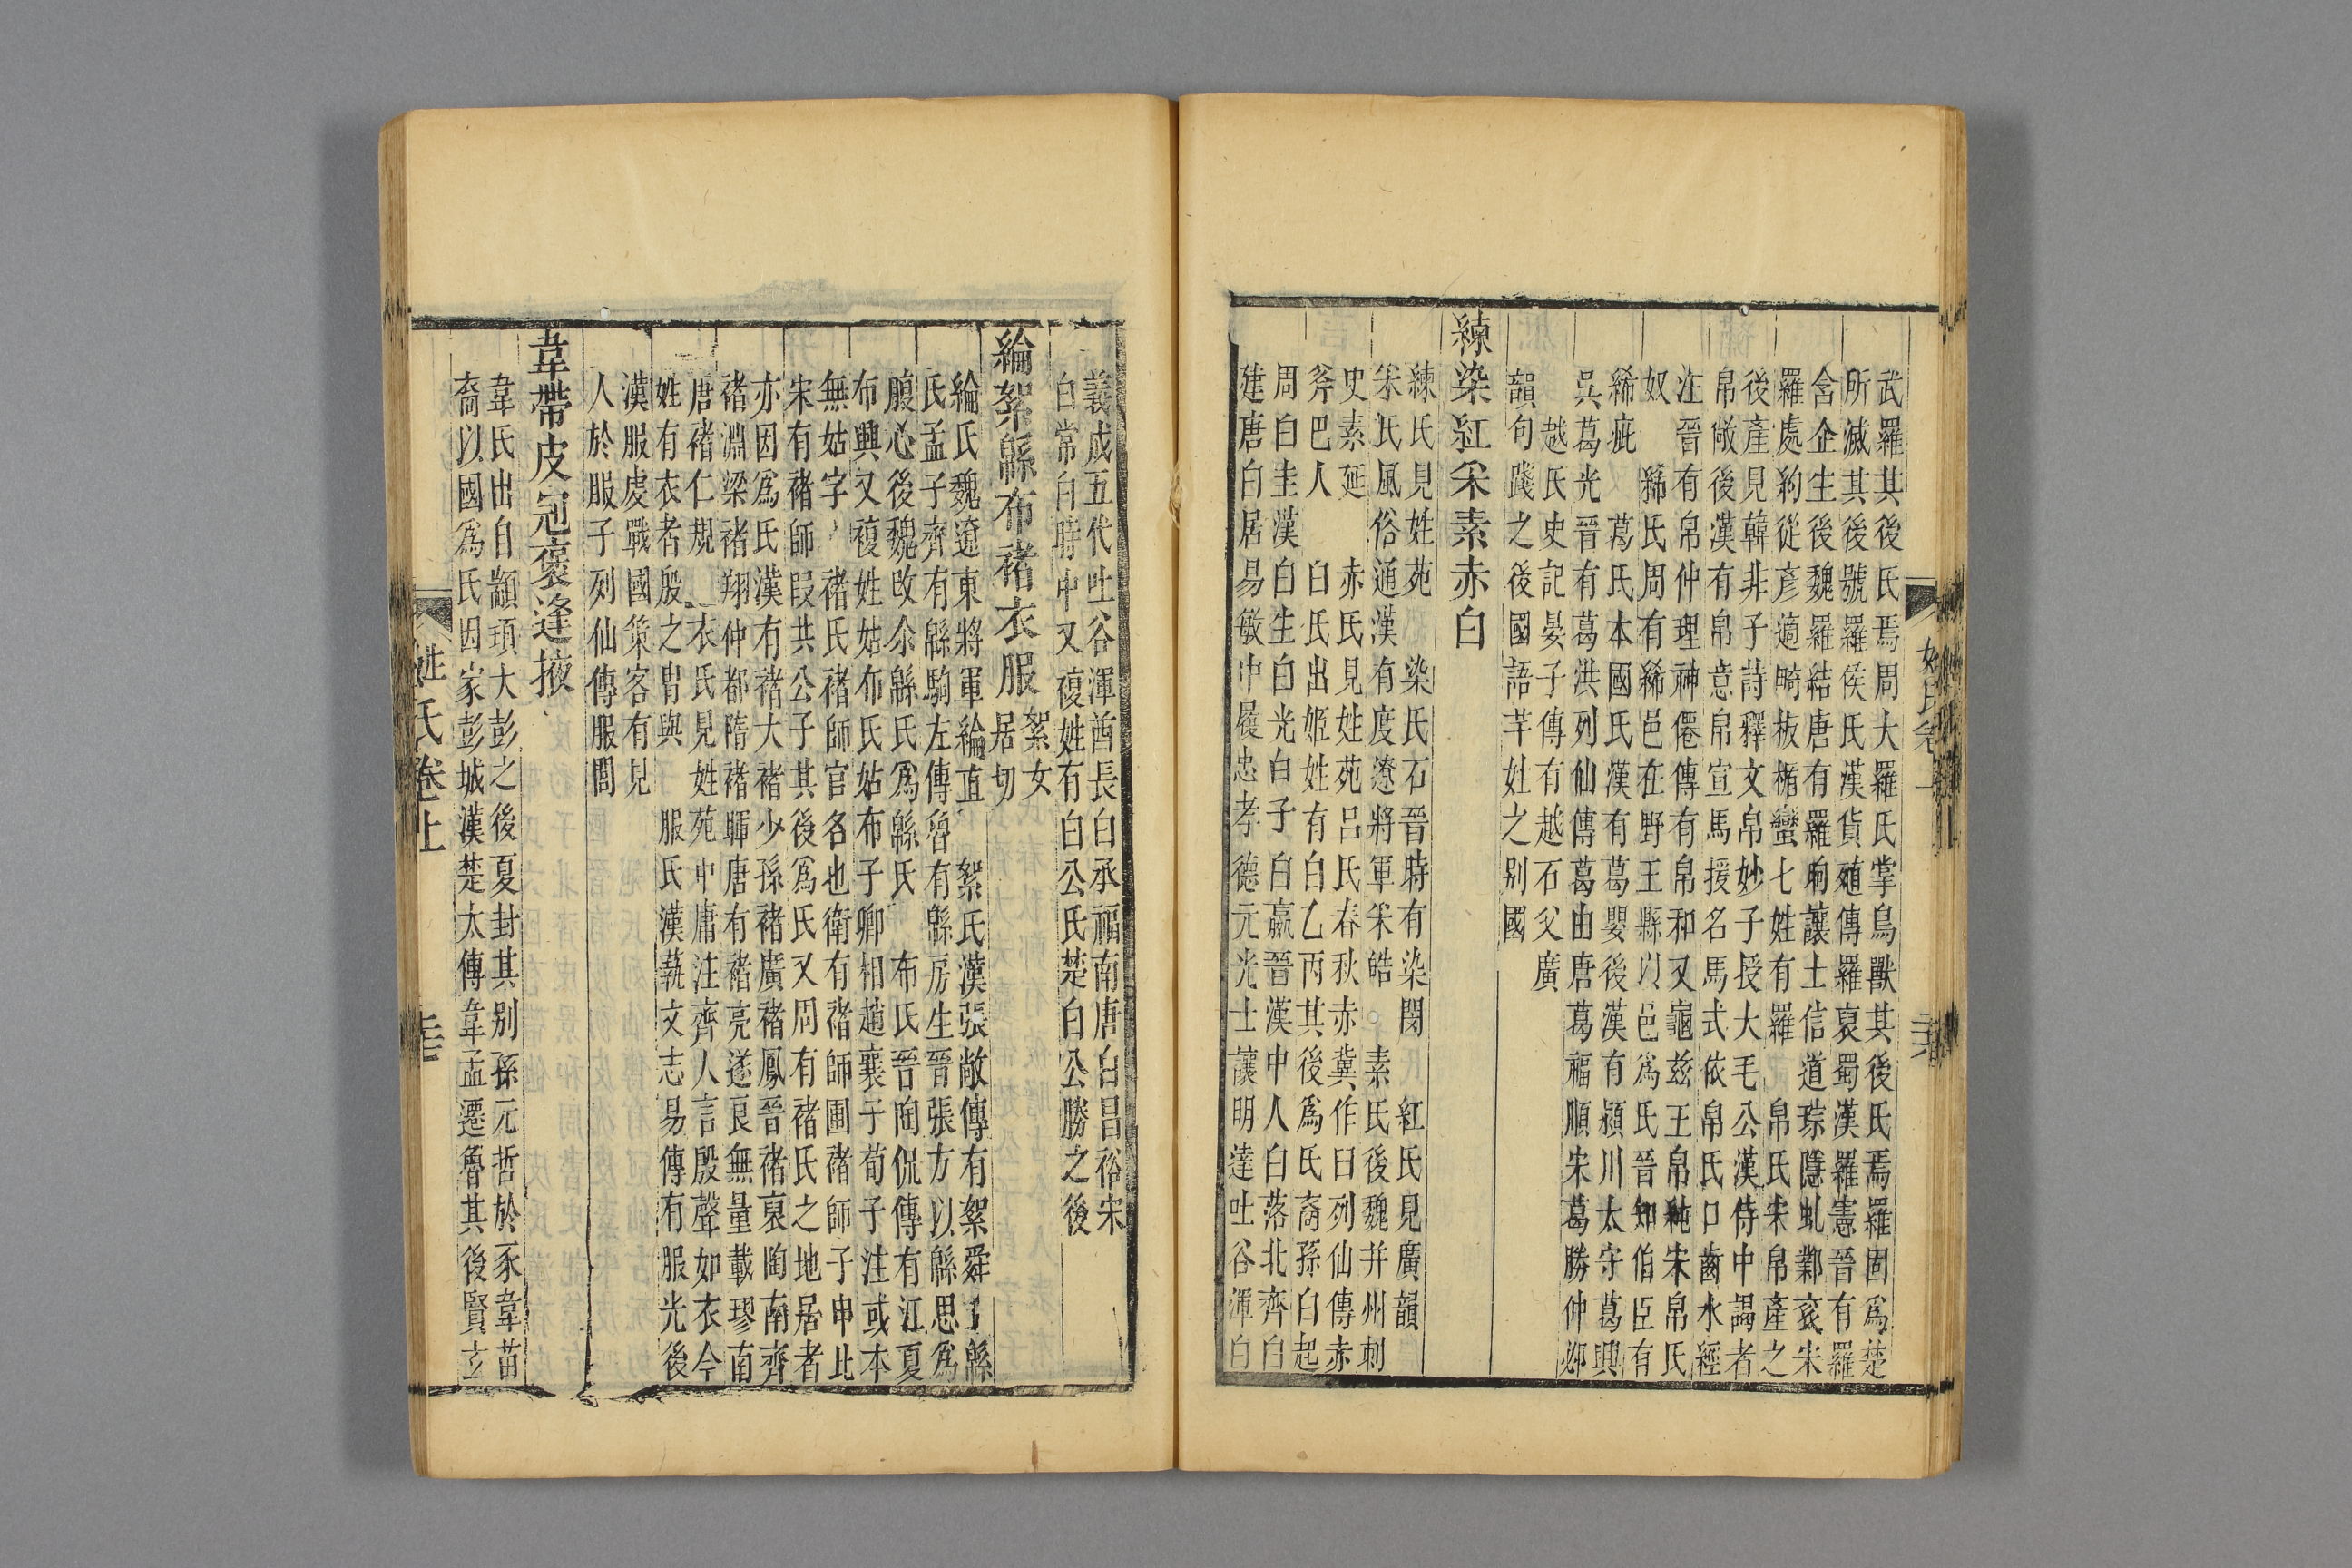 武羅其後氏焉周大羅氏掌鳥獸其後氏焉羅固爲楚
所滅其後號羅侯氏漢貨殖傳羅裒蜀漢羅憲晉有羅
含企生後魏羅結唐有羅珦讓士信道琮隱虬鄴衮宋
羅處約從彥適畸板楯蠻七姓有羅 帛氏宋帛產之
後產見韓非子詩釋文帛妙子授大毛公漢侍中謁者
帛敞後漢有帛意帛宣馬援名馬式依帛氏口齒水經
注晉有帛仲理神僊傳有帛和又龜兹王帛純宋帛氏
奴 絺氏周有絺邑在野王縣以邑爲氏晉知伯臣有
絺疵 葛氏本國氏漢有葛嬰後漢有潁川太守葛興
吳葛光晉有葛洪列仙傳葛由唐葛福順宋葛勝仲邲
越氏史記晏子傳有越石父廣
韻句踐之後國語芊姓之别國
練染紅宋素赤白
練氏見姓苑 染氏石晉時有染閔 紅氏見廣韻
宋氏風俗通漢有度遼將軍宋皓 素氏後魏并州刺
史素延 赤氏見姓苑呂氏春秋赤冀作臼列仙傳赤
斧巴人 白氏出姬姓有白乙丙其後爲氏裔孫白起
周白圭漢白生白光白子白嬴晉漢中人白落北齊白
建唐白居易敏中履忠孝德元光士讓明達吐谷渾白
姓氏卷上
義成五代吐谷渾酋長白承福南唐白昌裕宋
白常白時中又複姓有白公氏楚白公勝之後
綸絮緜布褚衣服 絮女居切
綸氏魏遼東將軍綸直 絮氏漢張敞傳有絮舜 緜
氏孟子齊有緜駒左傳魯有緜房生晉張方以緜思爲
腹心後魏改尒緜氏爲緜氏 布氏晉陶侃傳有江夏
布興又複姓姑布氏姑布子卿相趙襄子荀子注或本
無姑字 褚氏褚師官名也衛有褚師圃褚師子申此
宋有褚師叚共公子其後爲氏又周有褚氏之地居者
亦因爲氏漢有褚大褚少孫褚廣褚鳳晉褚裒陶南齊
褚淵梁褚翔仲都隋褚暉唐有褚亮遂良無量載璆南
唐褚仁規 衣氏見姓苑中庸注齊人言殷聲如衣今
姓有衣者殷之胄與 服氏漢蓺文志易傳有服光後
漢服虔戰國策客有見
人於服子列仙傳服閭
韋帶皮冠褒逢掖
韋氏出自顓頊大彭之後夏封其别孫元哲於豕韋苗
裔以國爲氏因家彭城漢楚太傅韋孟遷魯其後賢玄
姓氏卷上